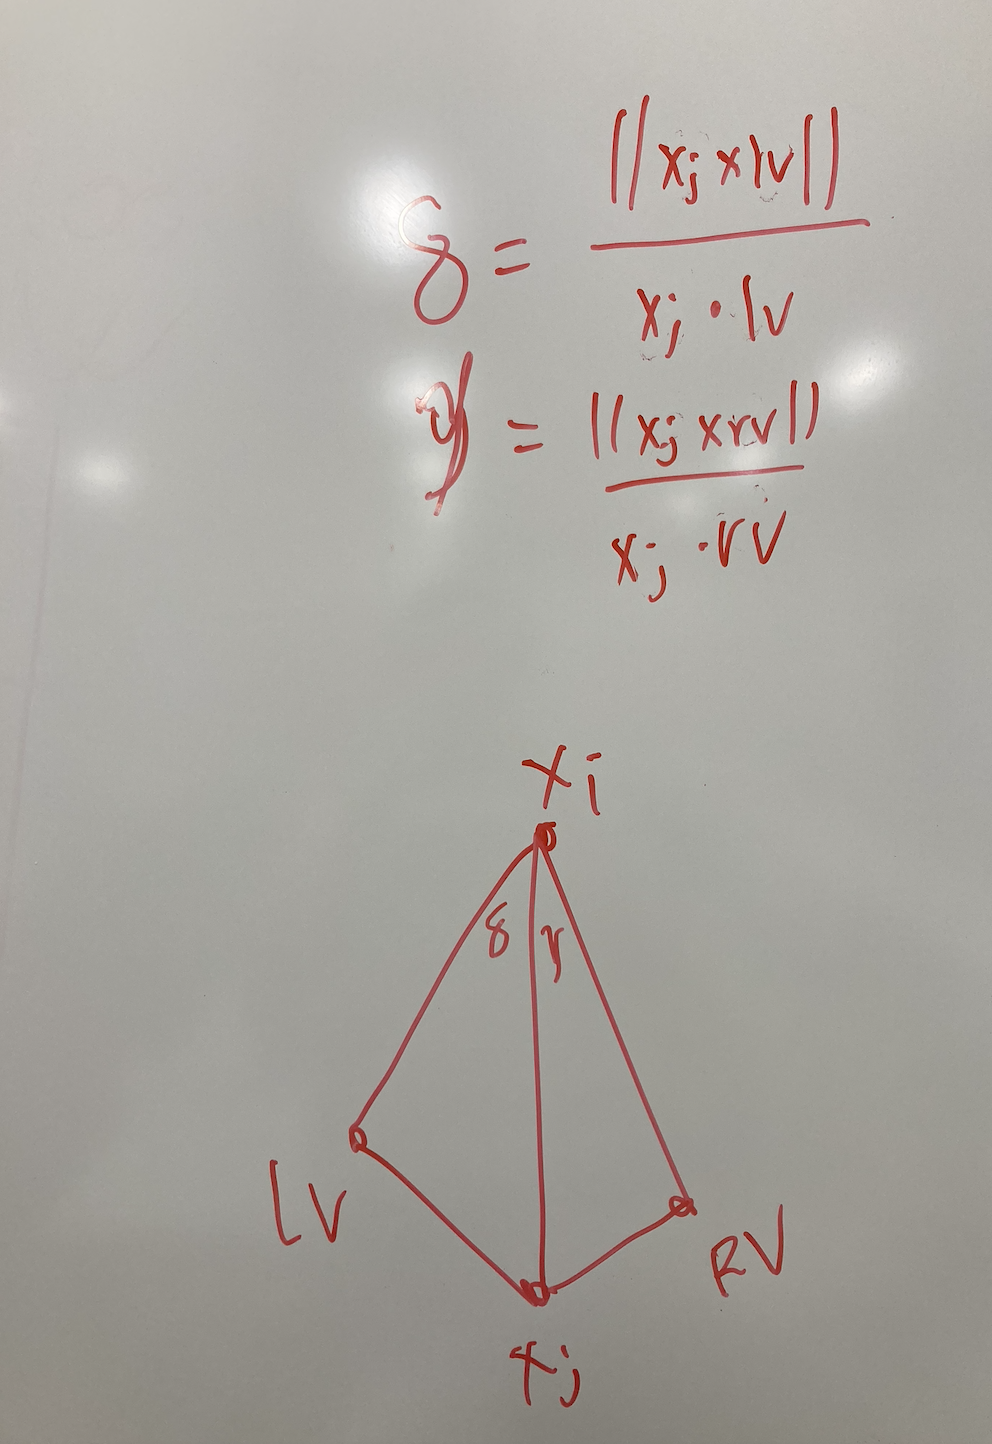 δ = ||xj × lv|| / xj · lv
γ = ||xj × rv|| / xj · rv
xi
δ γ
LV
RV
xj